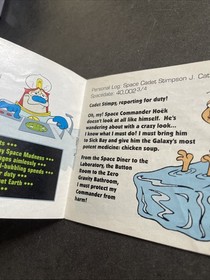 Personal Log: Space Cadet Stimpson J. Cat
Spacedate: 40,002 3/4
Cadet Stimpy, reporting for duty!
Oh, my! Space Commander Hoek
doesn't look at all like himself. He's
wandering about with a crazy look...
I know what I must do! I must bring him
to Sick Bay and give him the Galaxy's most
potent medicine: chicken soup.
From the Space Diner to the
Laboratory, the Button
Room to the Zero
Gravity Bathroom,
I must protect my
Commander from
harm!
ts •••
y Space Madness •••
ominously •••
-bubbling speeds •••
duty •••
Earth •••